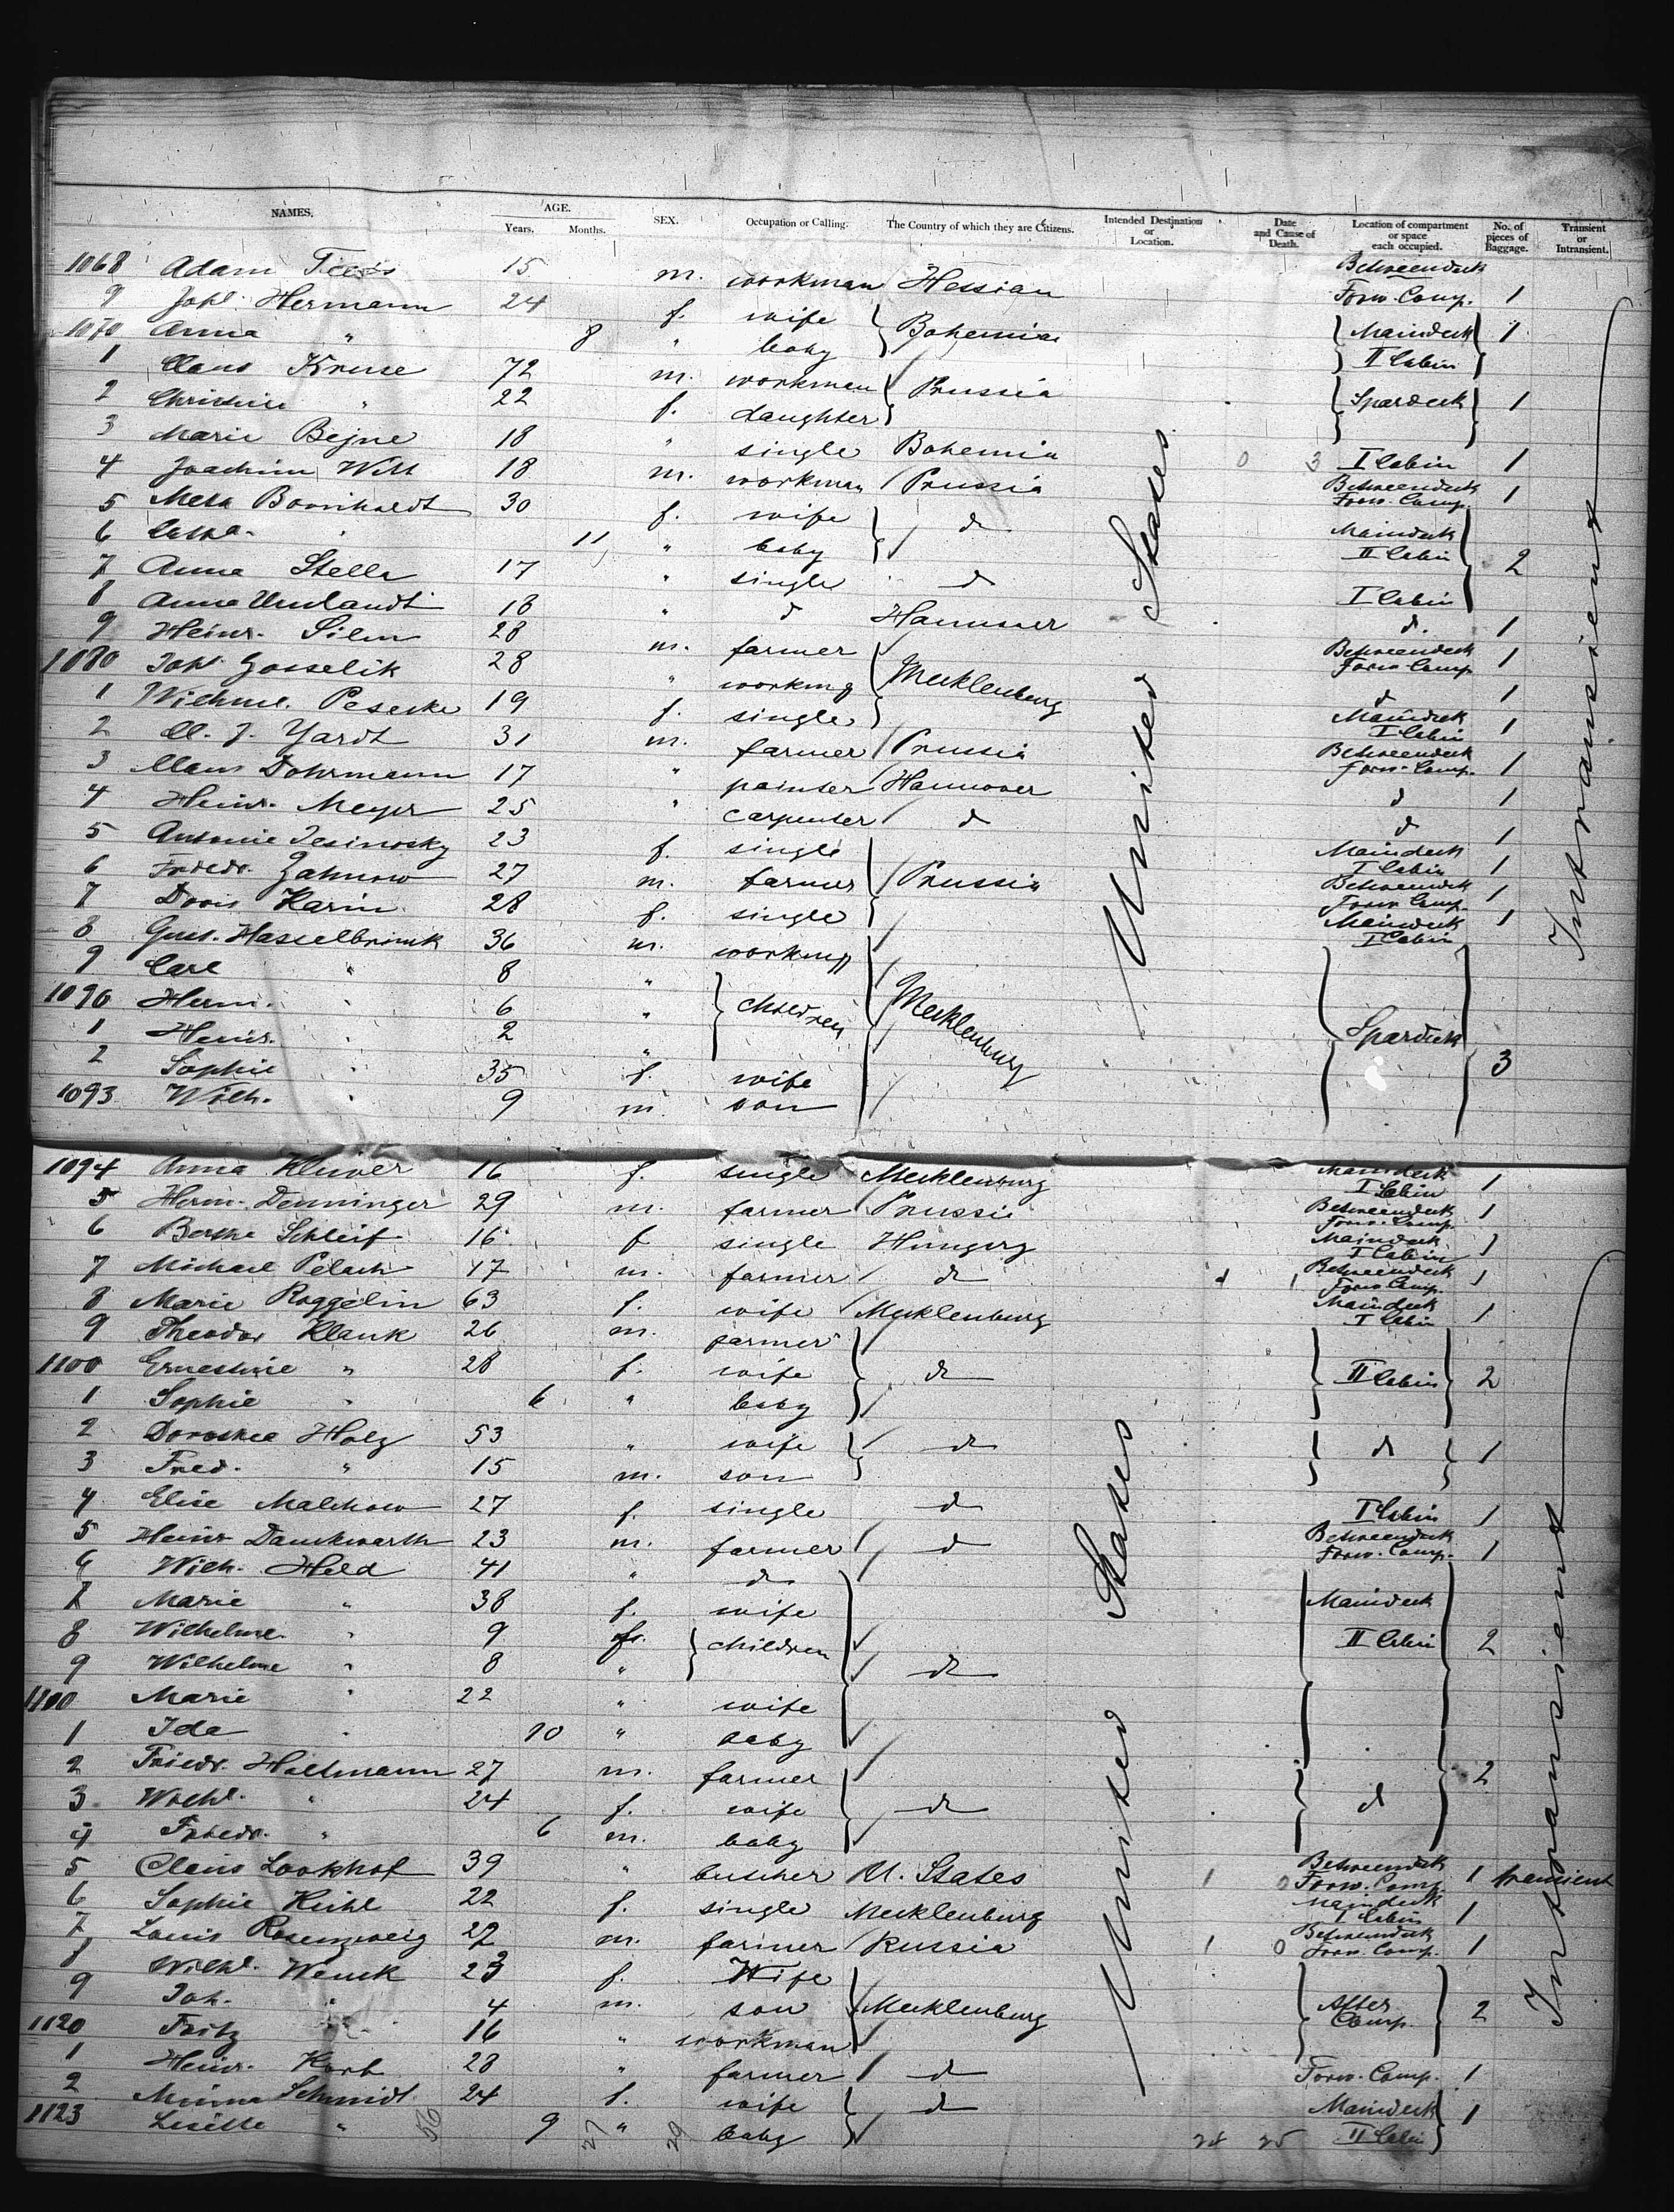 NAMES. AGE. SEX. Occupation or Calling. The Country of which they are Citizens. Intended Destination or Location. Date and Cause of Death. Location of compartment or space each occupied. No. of pieces of Baggage. Transient or Intransient.
Years. Months.
1068 Adam 15 m. workman Hessian Betweendeck Forw. Comp. 1
9 Joh. Hermann 24 f. wife Bohemia Maindeck 1
1070 Anna " 8 " baby II Cabin
1 Claus Kruse 72 m. workman Prussia Spardeck 1
2 Christine " 22 f. daughter
3 Marie Bejne 18 " single Bohemia 0 3 I Cabin 1
4 Joachim Witt 18 m. workman Prussia Betweendeck Forw. Comp. 1
5 Meta Boornholdt 30 f. wife d Maindeck 2
6 " 11 " baby II Cabin
7 Anna Stelle 17 " single d I Cabin
8 Anna Umlandt 18 " d Hannover d. 1
9 Heinr. Silm 28 m. farmer Mecklenburg Betweendeck Forw. Comp. 1
1080 Joh. Gosselik 28 " working d 1
1 Wilhme. Peseke 19 f. single Maindeck I Cabin 1
2 Cl. J. Yardt 31 m. farmer Prussia Betweendeck Forw. Comp. 1
3 Claus Dohrmann 17 " painter Hannover d 1
4 Heinr. Meyer 25 " carpenter d d 1
5 Antonie Jesinosky 23 f. single Prussia Maindeck I Cabin 1
6 Friedr. Zahnow 27 m. farmer Betweendeck Forw. Comp. 1
7 Doris Karin 28 f. single Maindeck I Cabin 1
8 Gust. Hasselbrinck 36 m. working Mecklenburg Spardeck 3
9 Carl " 8 " children
1090 Herm. " 6 "
1 Heinr. " 2 "
2 Sophie " 35 f. wife
1093 Wilh. " 9 m. son
United States
Intransient
1094 Anna Kluwer 16 f. single Mecklenburg Maindeck I Cabin 1
5 Herm. Denninger 29 m. farmer Prussia Betweendeck Forw. Comp. 1
6 Bertha Schleif 16 f single Hungery Maindeck I Cabin 1
7 Michael Pelach 17 m. farmer d 1 1 Betweendeck Forw. Comp. 1
8 Marie Roggelin 63 f. wife Mecklenburg Maindeck I Cabin 1
9 Theodor Klank 26 m. farmer d II Cabin 2
1100 Ernestine " 28 f. wife
1 Sophie " 6 " baby
2 Dorothea Holz 53 " wife d d 1
3 Fred. " 15 m. son
4 Elise Malchow 27 f. single d I Cabin 1
5 Heinr Danckwarth 23 m. farmer d Betweendeck Forw. Comp. 1
6 Wilh. Held 41 " d d Maindeck II Cabin 2
7 Marie " 38 f. wife
8 Wilhelme. " 9 f. children
9 Wilhelme " 8 "
1100 Marie " 22 " wife
1 Ida " 10 " baby
2 Friedr. Holtmann 27 m. farmer d d 2
3 Wilh. " 24 f. wife
4 Friedr. " 6 m. baby
5 Claus Lookhof 39 " butcher U. States 1 0 Betweendeck Forw. Comp. 1 transient
6 Sophie Kuhl 22 f. single Mecklenburg Maindeck I Cabin 1
7 Louis Rosenzweig 22 m. farmer Russia 1 0 Betweendeck Forw. Comp. 1
8 Wilh. Wenck 23 f. Wife Mecklenburg After Comp. 2
9 Joh. " 4 m. son
1120 Fritz " 16 " workman
1 Heinr. Korb 28 " farmer d Forw. Comp. 1
2 Minna Schmidt 24 f. wife d Maindeck 1
1123 Lisette " 9 " baby II Cabin
United States
Intransient
56 27 29 24 25